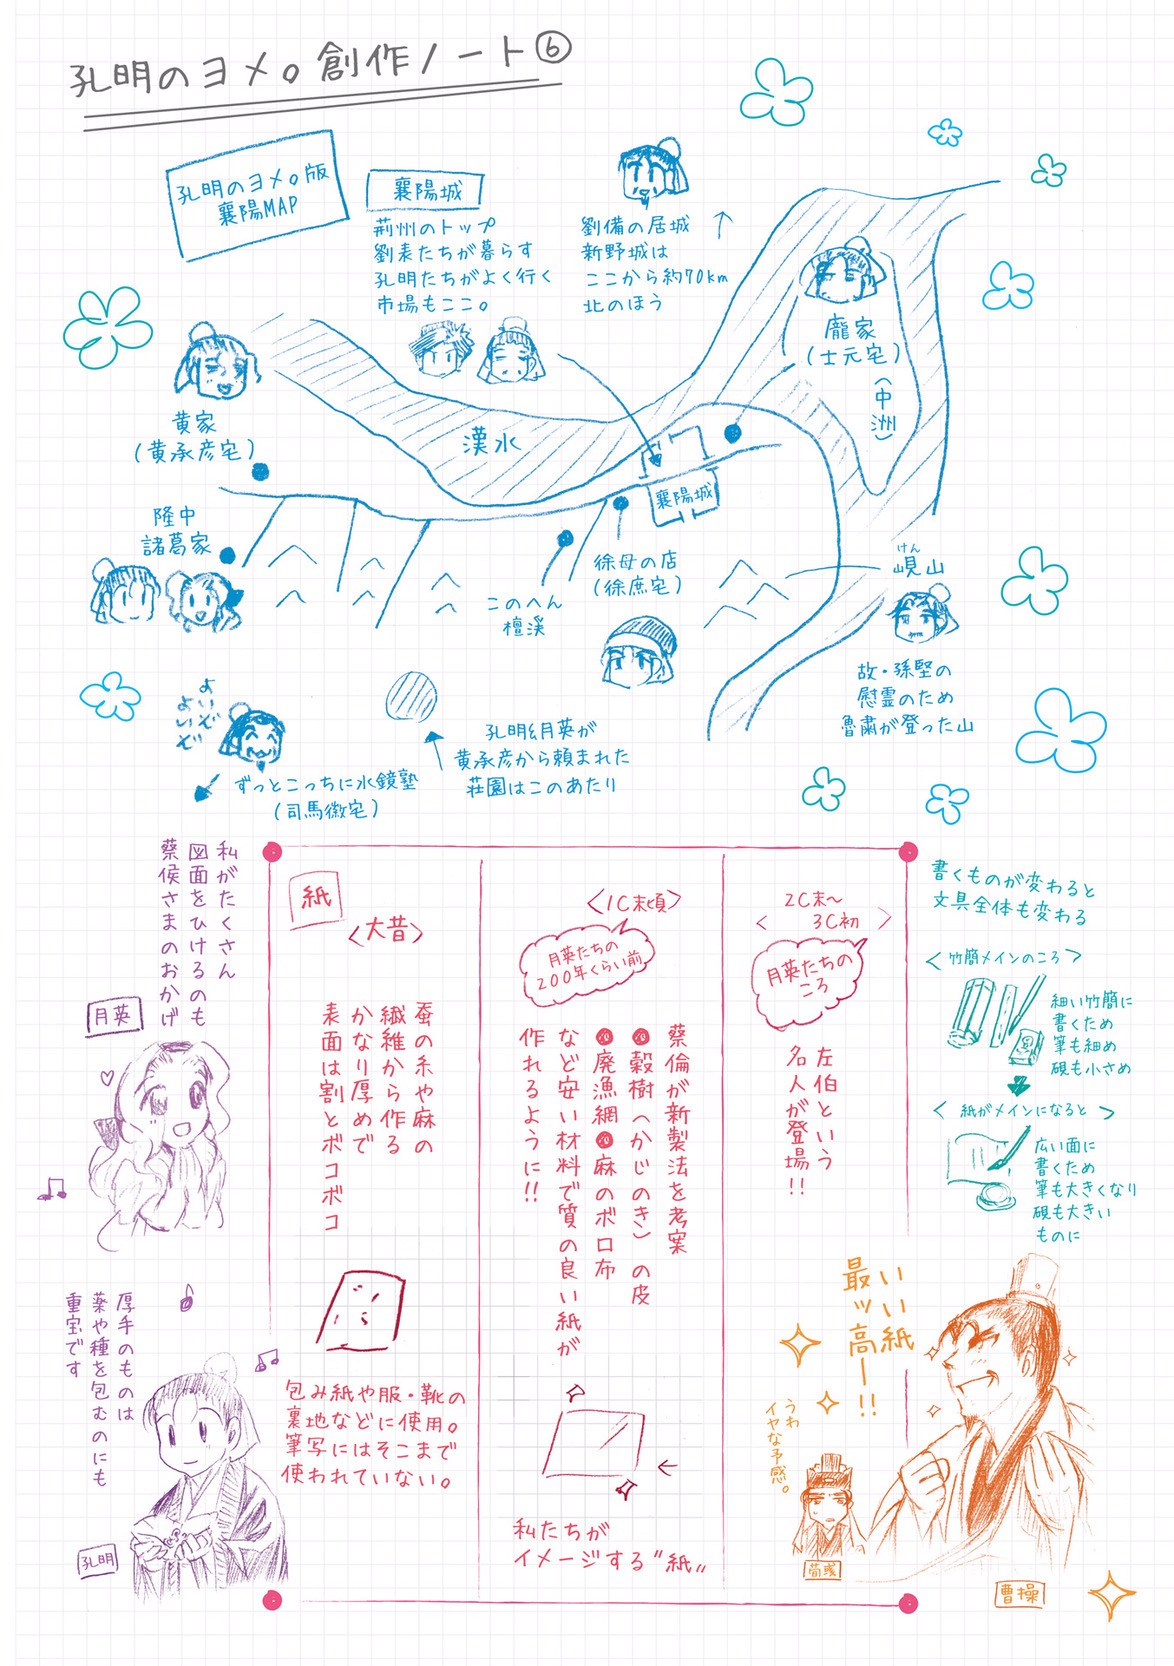 孔明のヨメ。創作ノート⑥
孔明のヨメ。版
襄陽MAP
襄陽城
荊州のトップ
劉表たちが暮らす
孔明たちがよく行く
市場もここ。
劉備の居城
新野城は
ここから約70km
北のほう
↑
龐家
(士元宅)
(中洲)
黄家
(黄承彦宅)
漢水
襄陽城
隆中
諸葛家
徐母の店
(徐庶宅)
このへん
檀渓
けん
峴山
故・孫堅の
慰霊のため
魯粛が登った山
よいぞ
よいぞ
ずっとこっちに水鏡塾
(司馬徽宅)
孔明&月英が
黄承彦から頼まれた
荘園はこのあたり
私がたくさん
図面をひけるのも
蔡侯さまのおかげ
月英
厚手のものは
薬や種を包むのにも
重宝です
孔明
紙
<大昔>
蚕の糸や麻の
繊維から作る
かなり厚めで
表面は割とボコボコ
包み紙や服・靴の
裏地などに使用。
筆写にはそこまで
使われていない。
<1C末頃>
月英たちの
200年くらい前
蔡倫が新製法を考案
●穀樹(かじのき)の皮
●廃漁網●麻のボロ布
など安い材料で質の良い紙が
作れるように!!
私たちが
イメージする〝紙〟
2C末~
<3C初>
月英たちの
ころ
左伯という
名人が登場!!
書くものが変わると
文具全体も変わる
<竹簡メインのころ>
細い竹簡に
書くため
筆も細め
硯も小さめ
<紙がメインになると>
広い面に
書くため
筆も大きくなり
硯も大きい
ものに
いい紙
最ッ高ー!!
うわ
イヤな予感。
荀彧
曹操